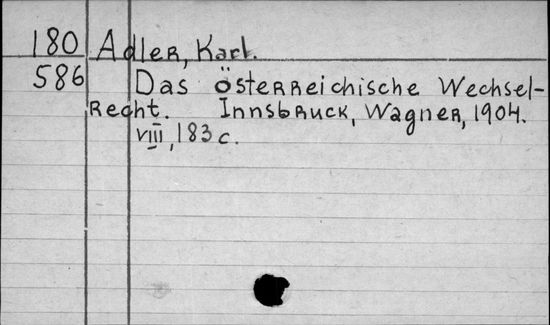 180 Adler, Karl.
586 Das österreichische Wechsel-
Recht. Innsbruck, Wagner, 1904.
VIII, 183 c.